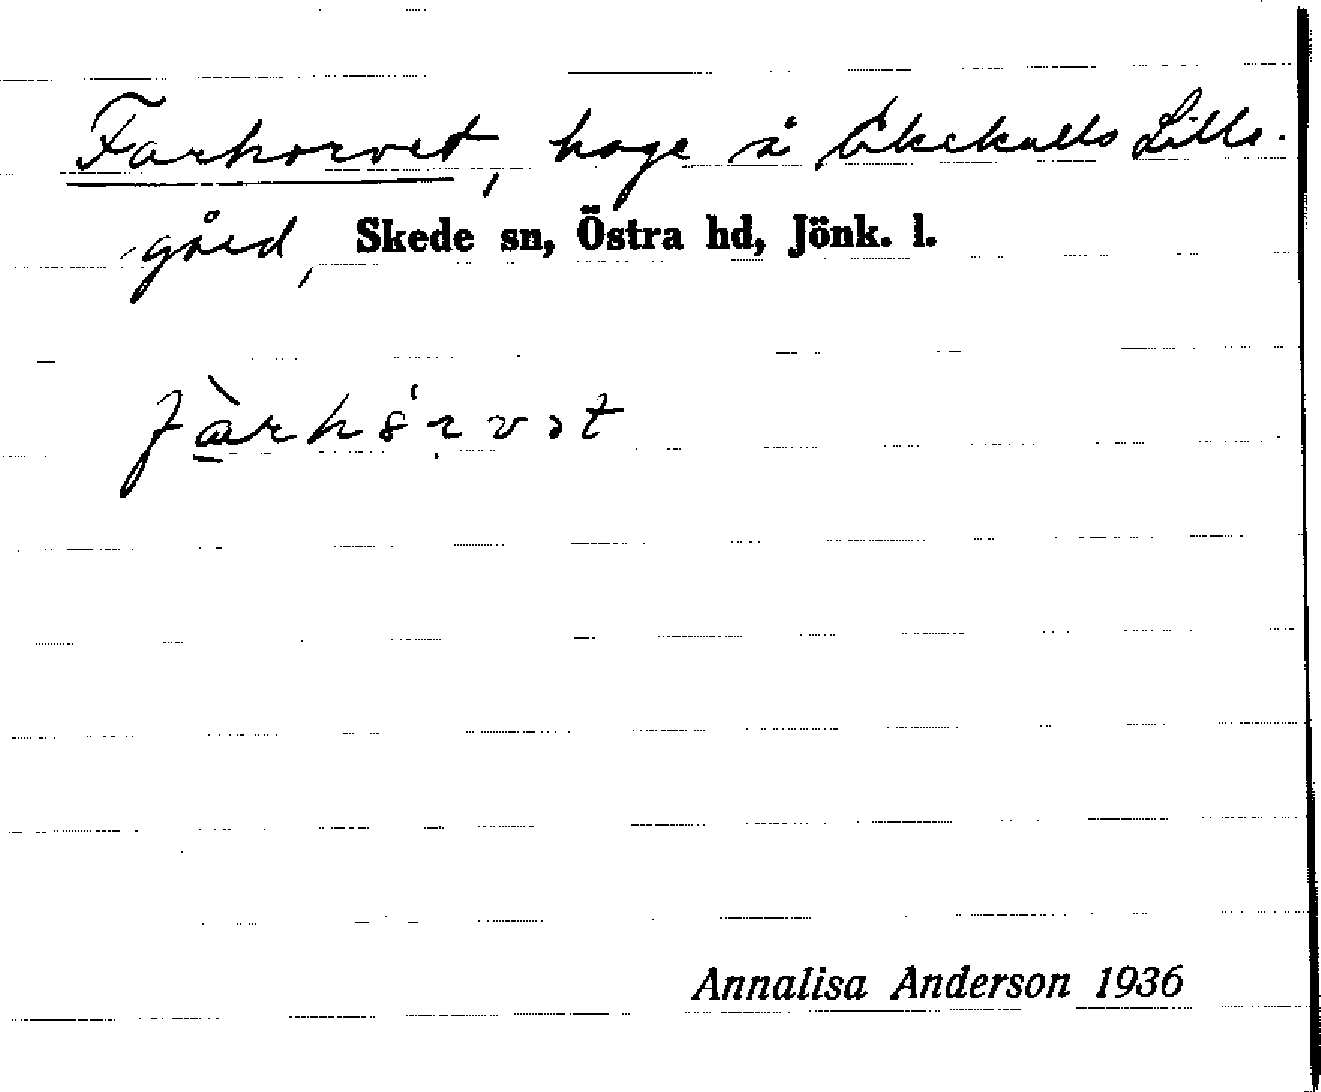 Farhorvet, hage å Åkekulls Lilla-
gård, Skede sn, Östra hd, Jönk. l.
Annalisa Anderson 1936